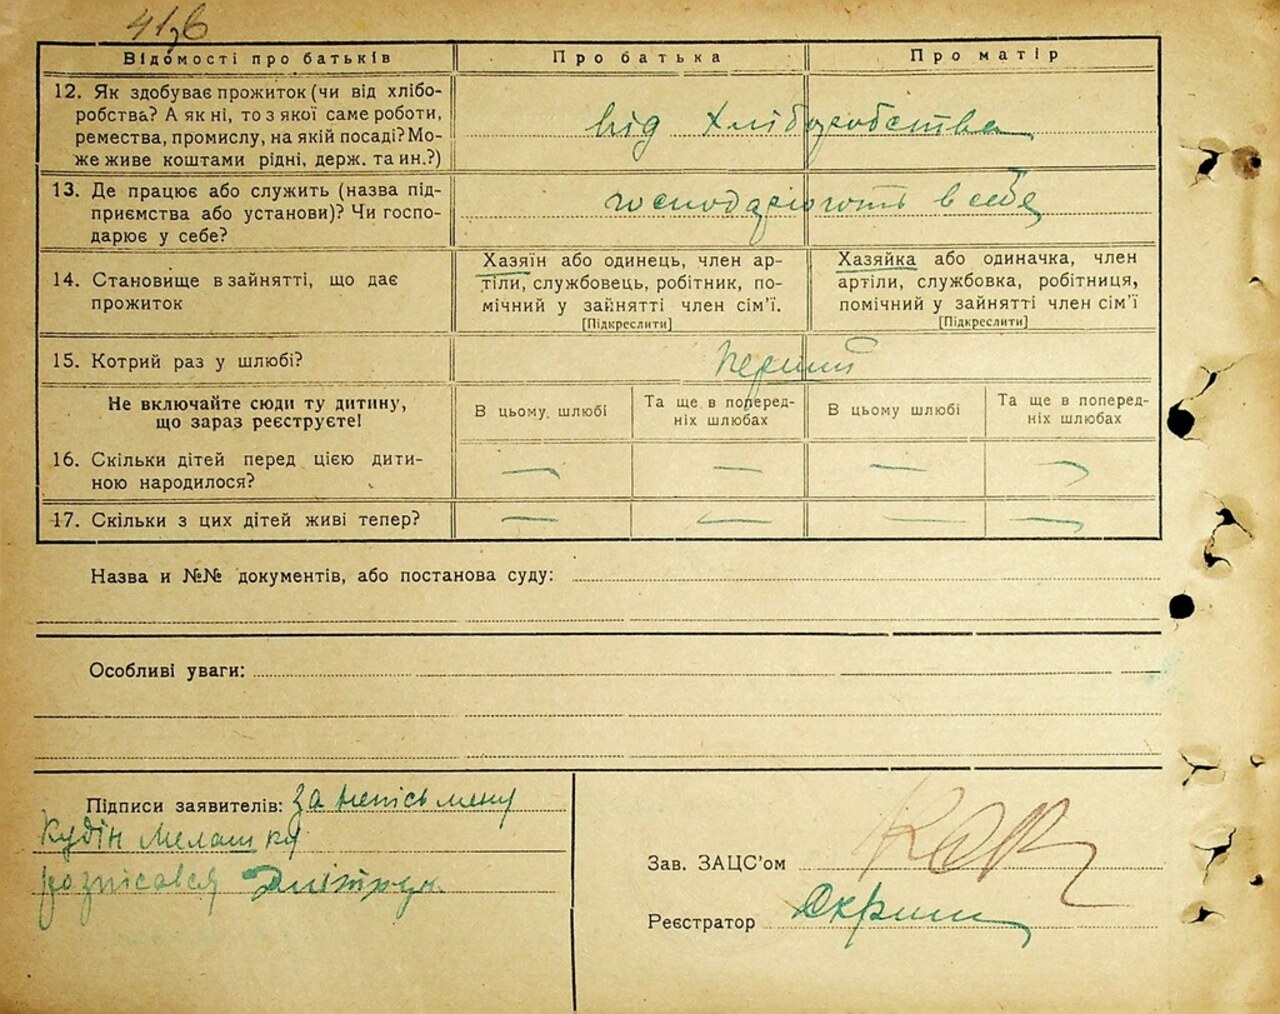 41зб
Відомості про батьків
Про батька
Про матір
12. Як здобуває прожиток (чи від хлібо-
робства? А як ні, то з якої саме роботи,
ремества, промислу, на якій посаді? Мо-
же живе коштами рідні, держ. та ин.?)
від хліборобства
13. Де працює або служить (назва під-
приємства або установи)? Чи госпо-
дарює у себе?
господарюють в себе
14. Становище в зайнятті, що дає
прожиток
Хазяїн або одинець, член ар-
тіли, службовець, робітник, по-
мічний у зайнятті член сім'ї.
[Підкреслити]
Хазяйка або одиначка, член
артіли, службовка, робітниця,
помічний у зайнятті член сім'ї
[Підкреслити]
15. Котрий раз у шлюбі?
Перший
Не включайте сюди ту дитину,
що зараз реєструєте!
В цьому шлюбі
Та ще в поперед-
ніх шлюбах
В цьому шлюбі
Та ще в поперед-
ніх шлюбах
16. Скільки дітей перед цією дити-
ною народилося?
— — — —
17. Скільки з цих дітей живі тепер?
— — — —
Назва и №№ документів, або постанова суду:
Особливі уваги:
Підписи заявителів: за непісьмену
Кудін Мелашку
розпісався
Зав. ЗАЦС'ом
Реєстратор